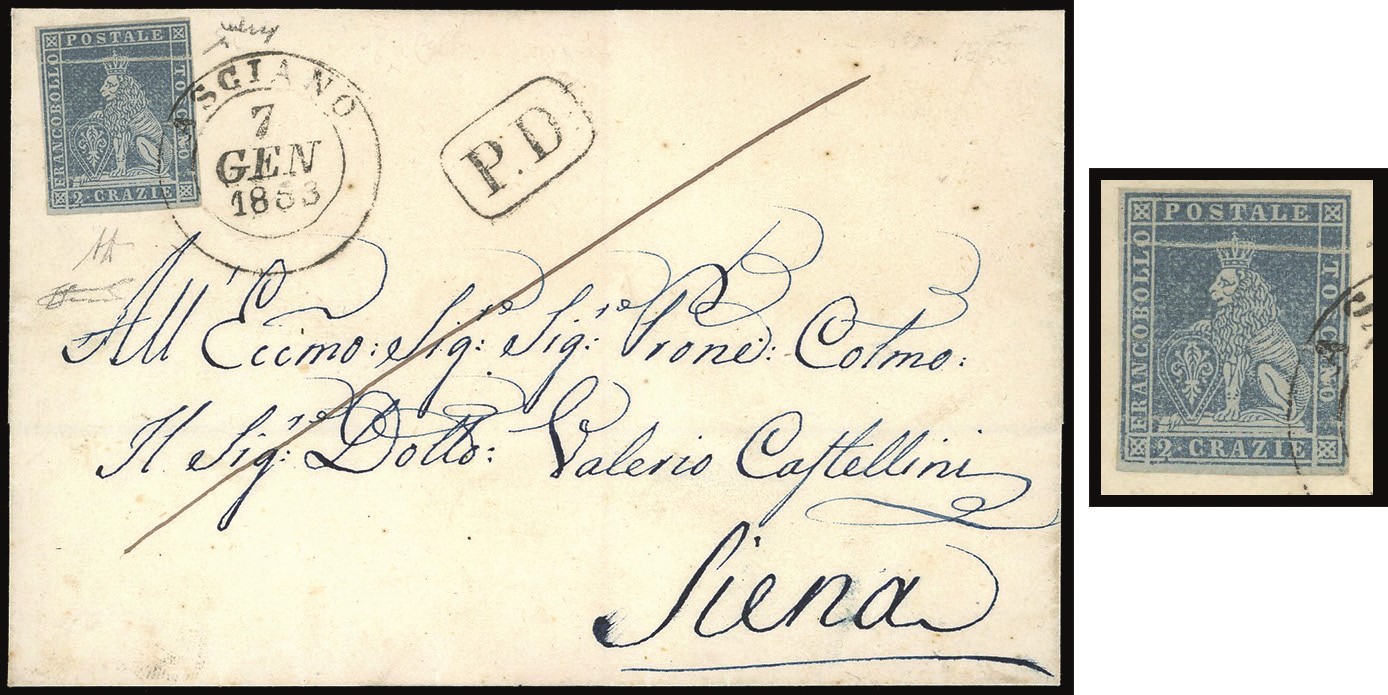 POSTALE
FRANCOBOLLO
TOSCANO
2·CRAZIE
ASCIANO
7
GEN
1853
P.D.
All' Eccmo: Sig:re Sig:re Prone: Colmo:
Il Sig:re Dotto: Valerio Castellini
Siena
POSTALE
FRANCOBOLLO
2·CRAZIE